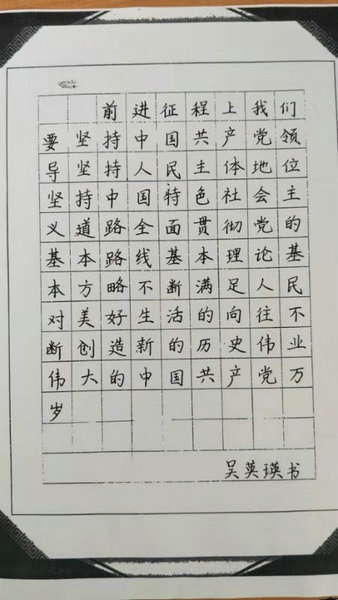 前进征程上我们
要坚持中国共产党领
导坚持人民主体地位
坚持中国特色社会主
义道路全面贯彻党的
基本路线基本理论基
本方略不断满足人民
对美好生活的向往不
断创造新的历史伟业
伟大的中国共产党万
岁
吴英瑛书